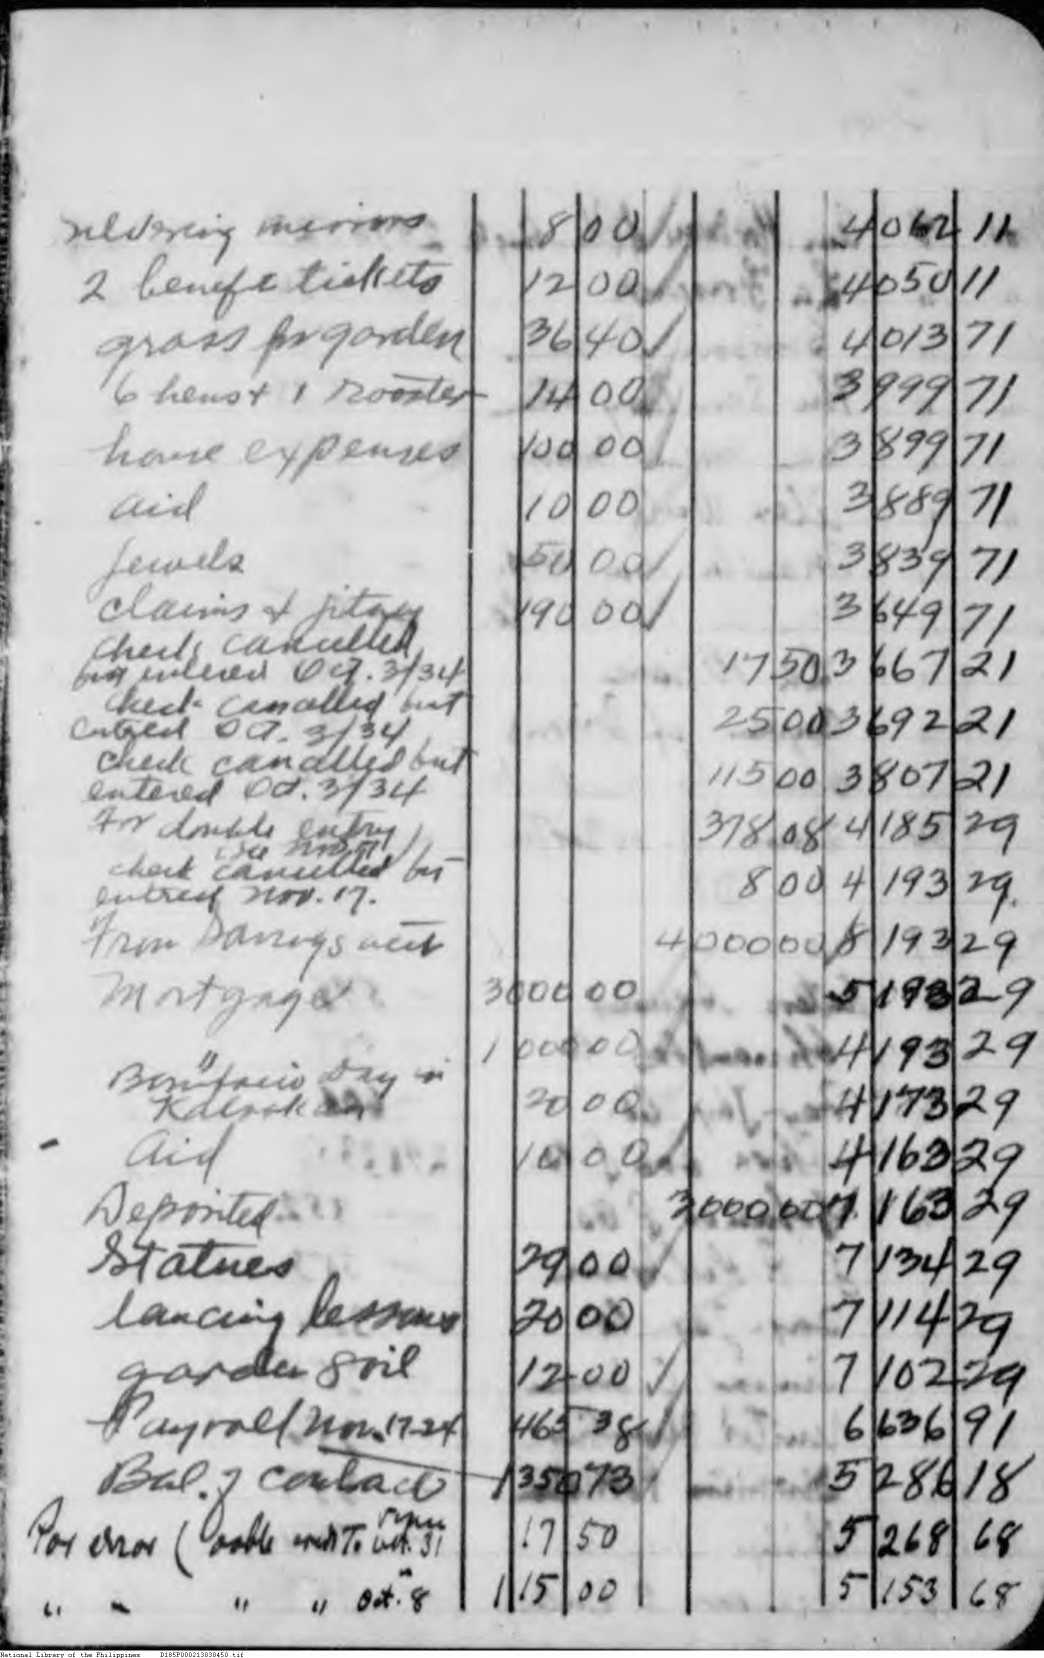 silvering mirrors 8 00 4 062 11
2 benefit tickets 12 00 4 050 11
grass for garden 36 40 4 013 71
6 hens + 1 rooster 14 00 3 999 71
house expenses 100 00 3 899 71
aid 10 00 3 889 71
Jewels 50 00 3 839 71
claims & jitney 190 00 3 649 71
check cancelled
but entered Oct. 3/34 17 50 3 667 21
check cancelled but
entered Oct. 3/34 25 00 3 692 21
check cancelled but
entered Oct. 3/34 115 00 3 807 21
For double entry 378 08 4 185 29
check cancelled but
entered Nov. 17. 8 00 4 193 29
From Savings acct 4 000 00 8 193 29
Mortgage 3000 00 5 193 29
" 1 000 00 4 193 29
Bonifacio Day in
Kalookan 20 00 4 173 29
Aid 10 00 4 163 29
Deposited 3 000 00 7 163 29
Statues 29 00 7 134 29
dancing lessons 20 00 7 114 29
garden soil 12 00 7 102 29
Payroll Nov. 17-24 465 38 6 636 91
Bal. of contract 1 350 73 5 286 18
For error ( Oct. 31 17 50 5 268 68
" " " " Oct. 8 115 00 5 153 68
National Library of the Philippines D185P000213038450.tif